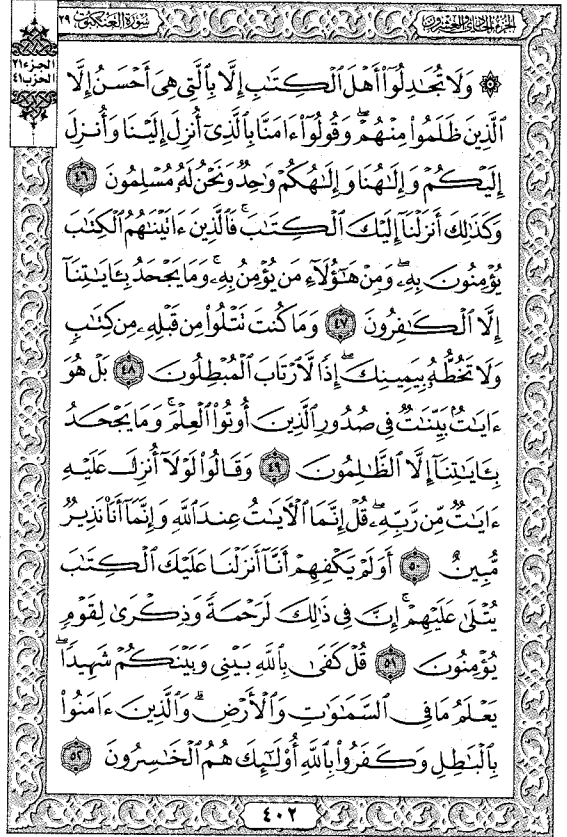 الجزء الحادي والعشرون
سورة العنكبوت ٢٩
الجزء ٢١
الحزب ٤١
۞ وَلَا تُجَٰدِلُوٓا۟ أَهْلَ ٱلْكِتَٰبِ إِلَّا بِٱلَّتِى هِىَ أَحْسَنُ إِلَّا
ٱلَّذِينَ ظَلَمُوا۟ مِنْهُمْ ۖ وَقُولُوٓا۟ ءَامَنَّا بِٱلَّذِىٓ أُنزِلَ إِلَيْنَا وَأُنزِلَ
إِلَيْكُمْ وَإِلَٰهُنَا وَإِلَٰهُكُمْ وَٰحِدٌ وَنَحْنُ لَهُۥ مُسْلِمُونَ ٤٦
وَكَذَٰلِكَ أَنزَلْنَآ إِلَيْكَ ٱلْكِتَٰبَ ۚ فَٱلَّذِينَ ءَاتَيْنَٰهُمُ ٱلْكِتَٰبَ
يُؤْمِنُونَ بِهِۦ ۖ وَمِنْ هَٰٓؤُلَآءِ مَن يُؤْمِنُ بِهِۦ ۚ وَمَا يَجْحَدُ بِـَٔايَٰتِنَآ
إِلَّا ٱلْكَٰفِرُونَ ٤٧ وَمَا كُنتَ تَتْلُوا۟ مِن قَبْلِهِۦ مِن كِتَٰبٍ
وَلَا تَخُطُّهُۥ بِيَمِينِكَ ۖ إِذًا لَّٱرْتَابَ ٱلْمُبْطِلُونَ ٤٨ بَلْ هُوَ
ءَايَٰتٌۢ بَيِّنَٰتٌ فِى صُدُورِ ٱلَّذِينَ أُوتُوا۟ ٱلْعِلْمَ ۚ وَمَا يَجْحَدُ
بِـَٔايَٰتِنَآ إِلَّا ٱلظَّٰلِمُونَ ٤٩ وَقَالُوا۟ لَوْلَآ أُنزِلَ عَلَيْهِ
ءَايَٰتٌ مِّن رَّبِّهِۦ ۖ قُلْ إِنَّمَا ٱلْـَٔايَٰتُ عِندَ ٱللَّهِ وَإِنَّمَآ أَنَا۠ نَذِيرٌ
مُّبِينٌ ٥٠ أَوَلَمْ يَكْفِهِمْ أَنَّآ أَنزَلْنَا عَلَيْكَ ٱلْكِتَٰبَ
يُتْلَىٰ عَلَيْهِمْ ۚ إِنَّ فِى ذَٰلِكَ لَرَحْمَةً وَذِكْرَىٰ لِقَوْمٍ
يُؤْمِنُونَ ٥١ قُلْ كَفَىٰ بِٱللَّهِ بَيْنِى وَبَيْنَكُمْ شَهِيدًا ۖ
يَعْلَمُ مَا فِى ٱلسَّمَٰوَٰتِ وَٱلْأَرْضِ ۗ وَٱلَّذِينَ ءَامَنُوا۟
بِٱلْبَٰطِلِ وَكَفَرُوا۟ بِٱللَّهِ أُو۟لَٰٓئِكَ هُمُ ٱلْخَٰسِرُونَ ٥٢
٤٠٢